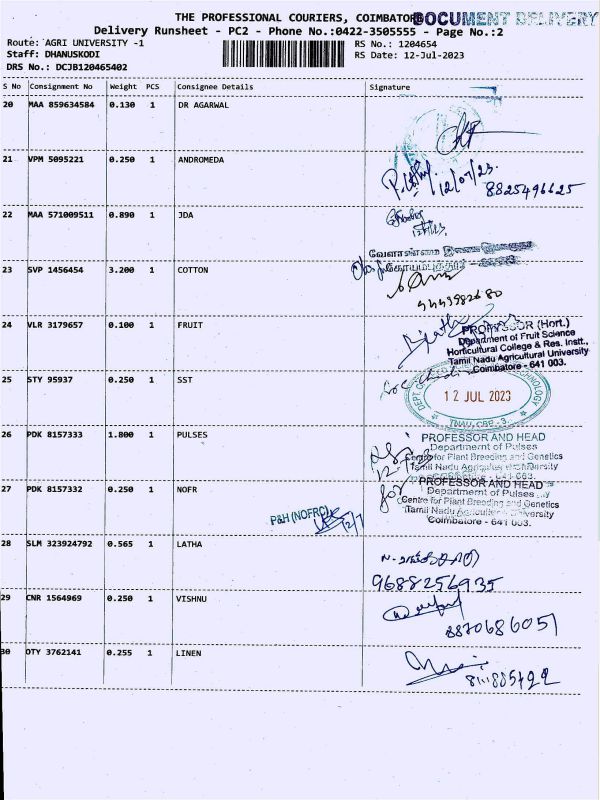 THE PROFESSIONAL COURIERS, COIMBATORE
DOCUMENT DELIVERY
Delivery Runsheet - PC2 - Phone No.:0422-3505555 - Page No.:2
Route: AGRI UNIVERSITY -1
RS No.: 1204654
Staff: DHANUSKODI
RS Date: 12-Jul-2023
DRS No.: DCJB120465402
S No Consignment No Weight PCS Consignee Details Signature
20 MAA 859634584 0.130 1 DR AGARWAL
21 VPM 5095221 0.250 1 ANDROMEDA
12/07/23.
8825496625
22 MAA 571009511 0.890 1 JDA
வேளாண்மை
கோயம்புத்தூர்
23 SVP 1456454 3.200 1 COTTON
24 VLR 3179657 0.100 1 FRUIT
PROFESSOR (Hort.)
Department of Fruit Science
Horticultural College & Res. Instt.,
Tamil Nadu Agricultural University
Coimbatore - 641 003.
25 STY 95937 0.250 1 SST
12 JUL 2023
TNAU, CBE - 3.
26 PDK 8157333 1.800 1 PULSES
PROFESSOR AND HEAD
Department of Pulses
Centre for Plant Breeding and Genetics
Tamil Nadu Agricultural University
Coimbatore - 641 003.
27 PDK 8157332 0.250 1 NOFR
P&H (NOFRC)
12/7
for
PROFESSOR AND HEAD
Department of Pulses
Centre for Plant Breeding and Genetics
Tamil Nadu Agricultural University
Coimbatore - 641 003.
28 SLM 323924792 0.565 1 LATHA
9688256935
29 CNR 1564969 0.250 1 VISHNU
8870686051
30 OTY 3762141 0.255 1 LINEN